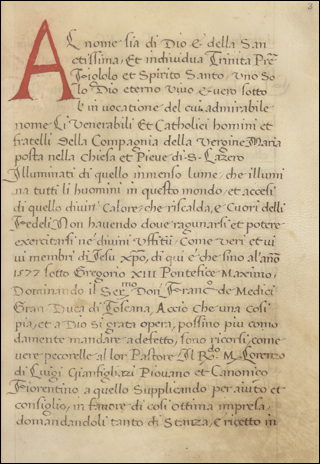 Al nome sia di Dio e della San
ctissima, Et individua Trinita Pře
Figlolo et Spirito Santo, Uno So
lo Dio eterno vivo e vero sotto
le in vocatione del cui admirabile
nome Li Venerabili Et Catholici homini et
fratelli della Compagnia della Vergine Maria
posta nella Chiesa et Pieve di S. Lazero
Illuminati di quello inmenso lume, che illumi
na tutti li huomini in questo mondo, et accesi
di quello divin' Calore, che riscalda, e Cuori delli
Feddeli, Non havendo dove ragunarsi et potere
exercitarsi ne' divini Uffitii, Come veri et vi
vi membri di Jesu xp̃o, di qui è che sino al año
1577 sotto Gregorio XIII Pontefice Maximo,
Dominando il Ser.mo Don Franc.o de Medici
Gran Duca di Toscana, Acciò che una cosi
pia, et a Dio si grata opera, possino piu como
damente mandare ad effetto, sono ricorsi, come
vere pecorelle al lor Pastore Il R.do M. Lorenzo
di Luigi Gianfigliazi Piovano et Canonico
Fiorentino a quello Supplicando per aiuto et
consiglio, in favore di cosi ottima impresa,
domandandoli tanto di Stanza, e ricetto in